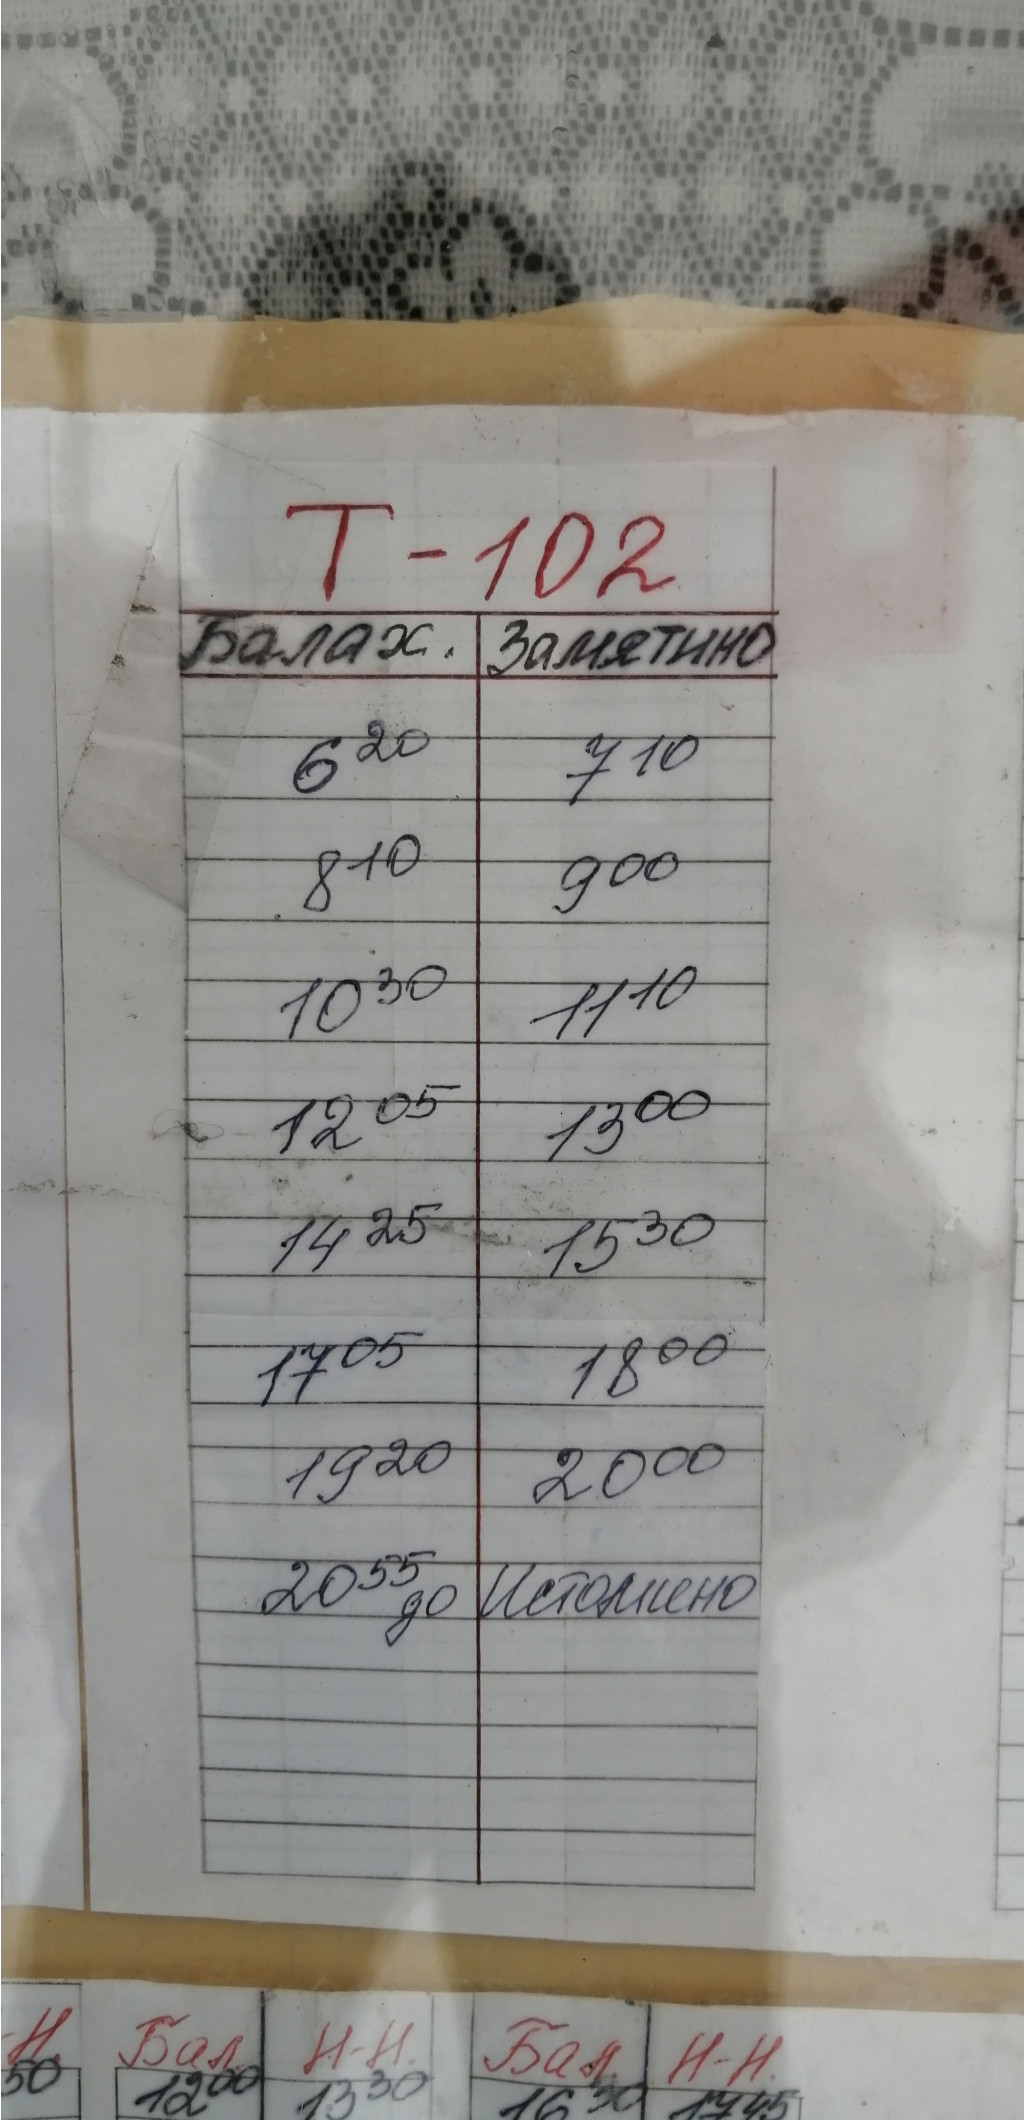 Т-102
Балах. Замятино
6 20 7 10
8 10 9 00
10 30 11 10
12 05 13 00
14 25 15 30
17 05 18 00
19 20 20 00
20 55 до Истомино
-Н. Бал Н-Н. Бал Н-Н.
50 12 00 13 30 16 30 17 45